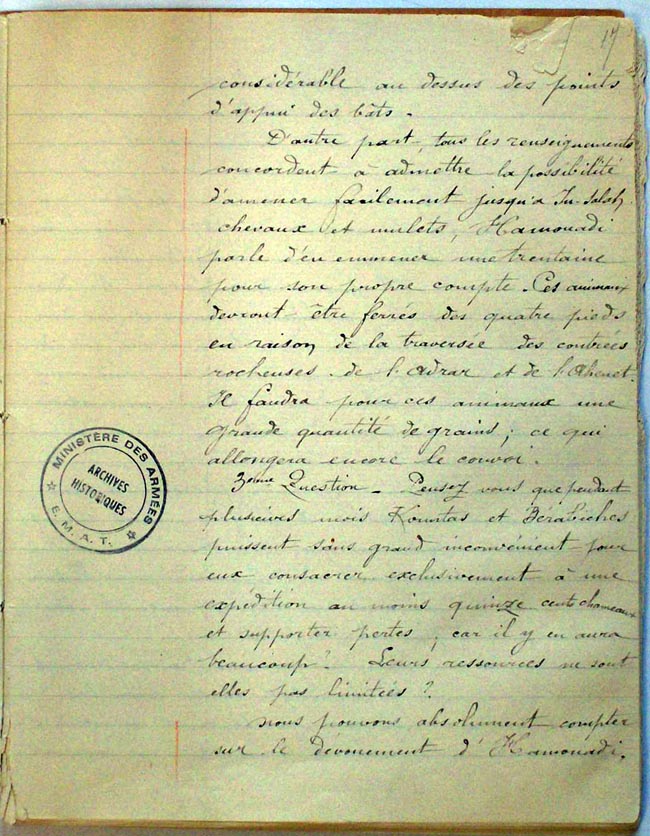 17
considérable au dessus des points
d'appui des bâts.
D'autre part, tous les renseignements
concordent à admettre la possibilité
d'amener facilement jusqu'à In-Salah
chevaux et mulets, Hamouadi
parle d'en emmener une trentaine
pour son propre compte. Ces animaux
devront être ferrés des quatre pieds
en raison de la traversée des contrées
rocheuses de l'Adrar et de l'Ahenet.
Il faudra pour ces animaux une
grande quantité de grains; ce qui
allongera encore le convoi.
3ème Question - Pensez vous que pendant
plusieurs mois Kountas et Bérabiches
puissent sans grand inconvénient pour
eux consacrer exclusivement à une
expédition au moins quinze cents chameaux
et supporter pertes, car il y en aura
beaucoup? Leurs ressources ne sont
elles pas limitées?
nous pouvons absolument compter
sur le dévouement d'Hamouadi,
MINISTÈRE DES ARMÉES
ARCHIVES
HISTORIQUES
E. M. A. T.